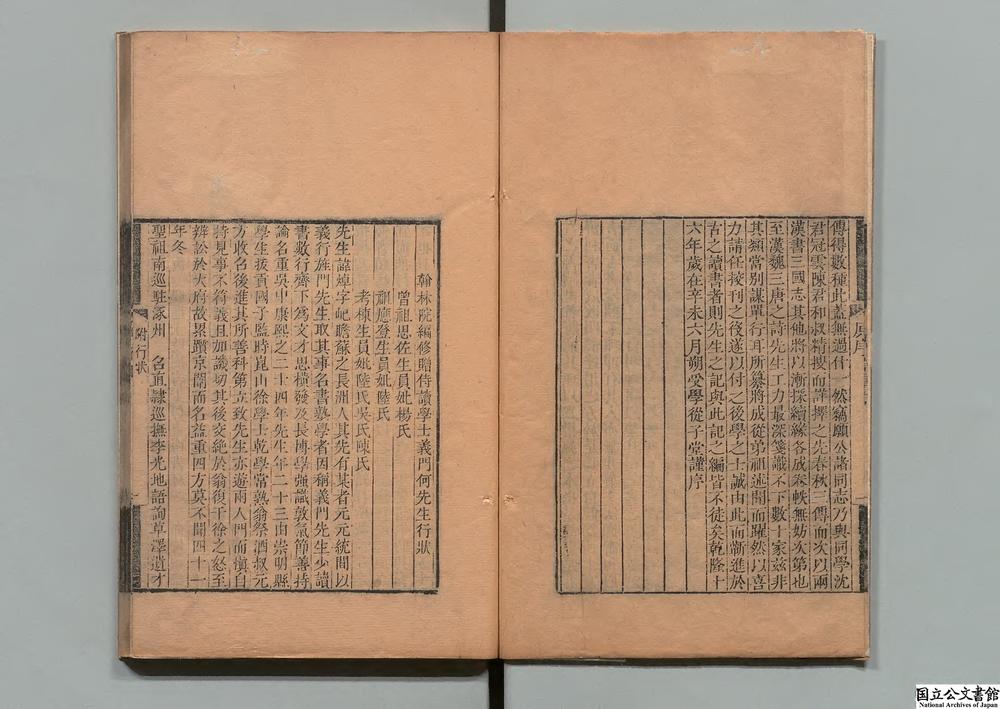 傳得數種此蓋無過什一然竊願公諸同志乃與同學沈
君冠雲陳君和叔精搜而詳擇之先春秋三傳而次以兩
漢書三國志其他將以漸採續緣各成卷帙無妨次第也
至漢魏三唐之詩先生工力最深箋識不下數十家茲非
其類當別謀單行耳所纂將成從弟祖述聞而躍然以喜
力請任挍刊之後遂以付之後學之士誠由此而漸進於
古之讀書者則先生之記與此記之編皆不徒矣乾隆十
六年歲在辛未六月朔受學從子堂謹序
翰林院編修贈侍讀學士義門何先生行狀
曾祖思佐生員妣楊氏
祖應登生員妣陸氏
考棟生員妣陸氏吳氏陳氏
先生諱焯字屺瞻蘇之長洲人其先有某者元元統間以
義行旌門先生取其事名書塾學者因稱義門先生少讀
書數行齊下爲文才思橫發及長博學強識敦氣節善持
論名重吳中康熙之二十四年先生年二十三由崇明縣
學生拔貢國子監時崑山徐學士乾學常熟翁祭酒叔元
方收名後進其所善科第立致先生亦遊兩人門而愼自
將見事不符義且加譏切其後交絕於翁復干徐之怒至
辨訟於大府故累躓京闈而名益重四方莫不聞四十一
年冬
聖祖南巡駐涿州 召直隸巡撫李光地語詢草澤遺才
附行狀
一
国立公文書館
National Archives of Japan